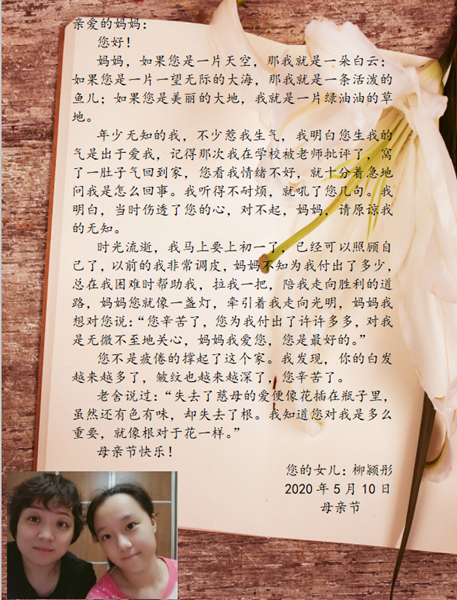 亲爱的妈妈：
您好！
妈妈，如果您是一片天空，那我就是一朵白云；
如果您是一片一望无际的大海，那我就是一条活泼的
鱼儿；如果您是美丽的大地，我就是一片绿油油的草
地。
年少无知的我，不少惹我生气，我明白您生我的
气是出于爱我，记得那次我在学校被老师批评了，窝
了一肚子气回到家，您看我情绪不好，就十分着急地
问我是怎么回事。我听得不耐烦，就吼了您几句。我
明白，当时伤透了您的心，对不起，妈妈，请原谅我
的无知。
时光流逝，我马上要上初一了，已经可以照顾自
己了，以前的我非常调皮，妈妈不知为我付出了多少，
总在我困难时帮助我，拉我一把，陪我走向胜利的道
路，妈妈您就像一盏灯，牵引着我走向光明，妈妈我
想对您说：“您辛苦了，您为我付出了许许多多，对我
是无微不至地关心，妈妈我爱您，您是最好的。”
您不是疲倦的撑起了这个家。我发现，你的白发
越来越多了，皱纹也越来越深了，您辛苦了。
老舍说过：“失去了慈母的爱便像花插在瓶子里，
虽然还有色有味，却失去了根。我知道您对我是多么
重要，就像根对于花一样。”
母亲节快乐！
您的女儿：柳颖彤
2020年5月10日
母亲节